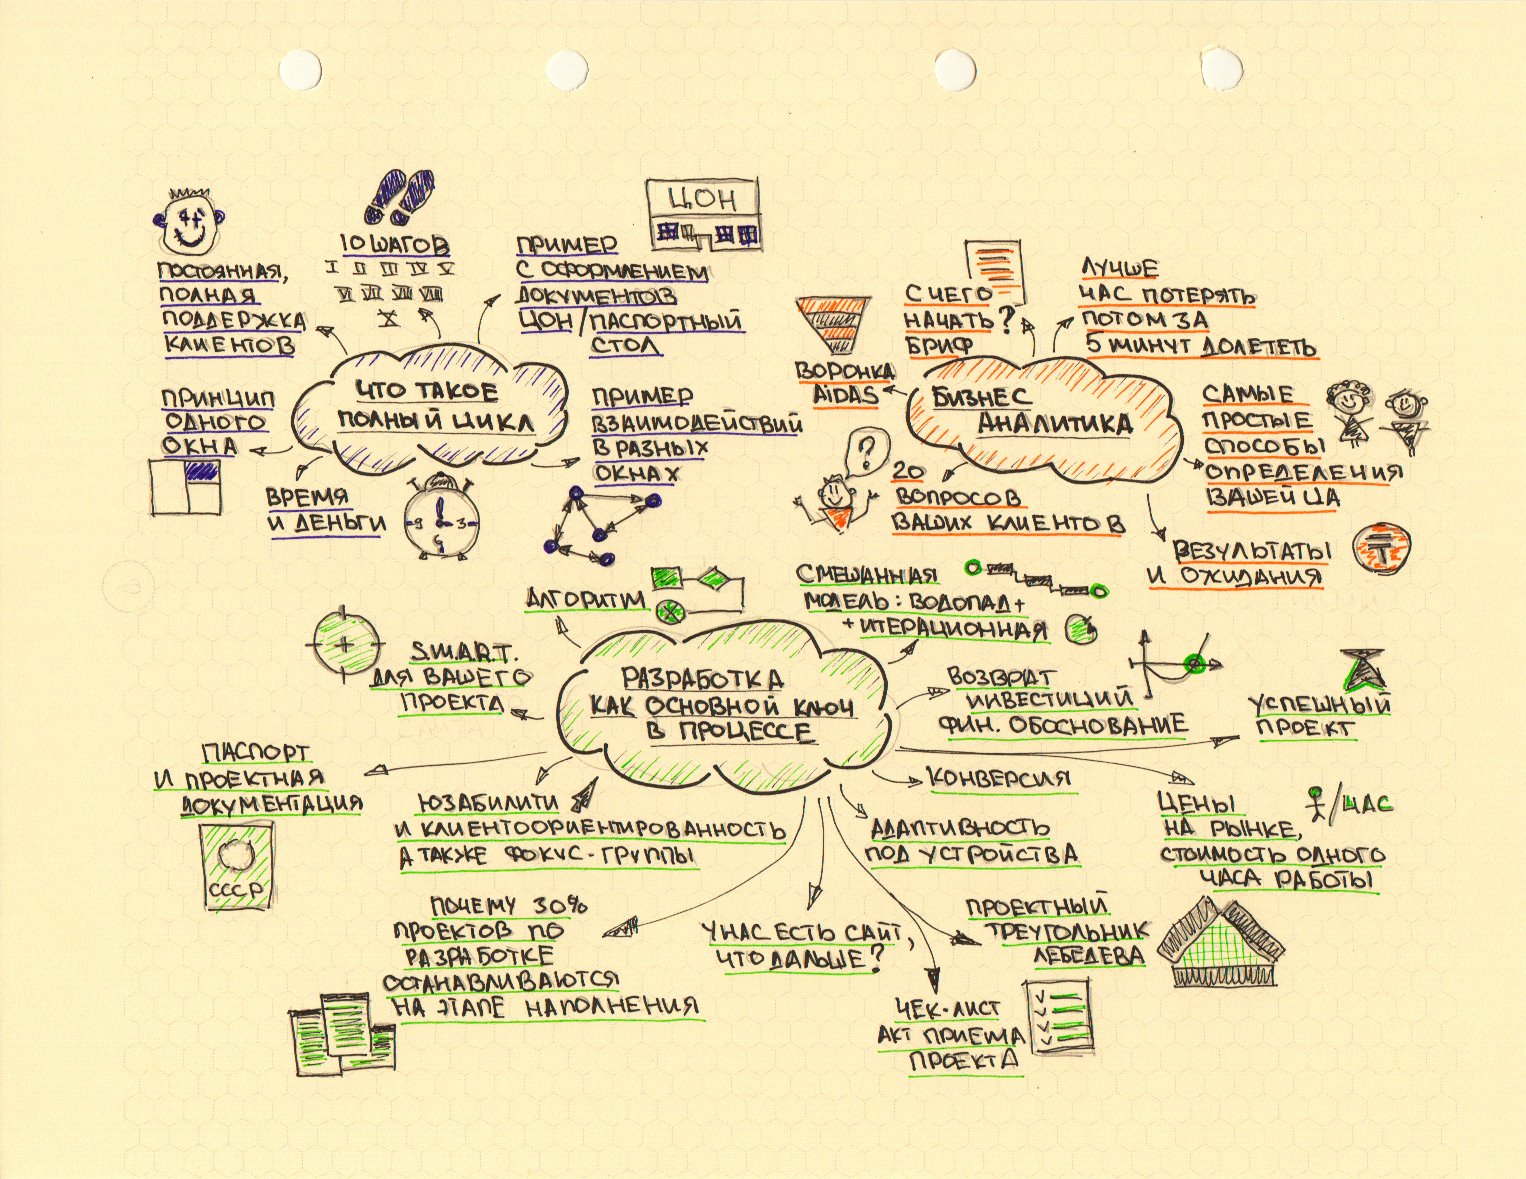 ЦОН
10 ШАГОВ
I II III IV V
VI VII VIII VIIII
X
ПОСТОЯННАЯ,
ПОЛНАЯ
ПОДДЕРЖКА
КЛИЕНТОВ
ПРИМЕР
С ОФОРМЛЕНИЕМ
ДОКУМЕНТОВ
ЦОН/ПАСПОРТНЫЙ
СТОЛ
ЧТО ТАКОЕ
ПОЛНЫЙ ЦИКЛ
ПРИНЦИП
ОДНОГО
ОКНА
ВРЕМЯ
И ДЕНЬГИ
9 3
6
ПРИМЕР
ВЗАИМОДЕЙСТВИЙ
В РАЗНЫХ
ОКНАХ
С ЧЕГО
НАЧАТЬ?
БРИФ
ЛУЧШЕ
ЧАС ПОТЕРЯТЬ
ПОТОМ ЗА
5 МИНУТ ДОЛЕТЕТЬ
ВОРОНКА
AiDAS
БИЗНЕС
АНАЛИТИКА
САМЫЕ
ПРОСТЫЕ
СПОСОБЫ
ОПРЕДЕЛЕНИЯ
ВАШЕЙ ЦА
?
20
ВОПРОСОВ
ВАШИХ КЛИЕНТОВ
РЕЗУЛЬТАТЫ
И ОЖИДАНИЯ
АЛГОРИТМ
СМЕШАННАЯ
МОДЕЛЬ: ВОДОПАД+
+ИТЕРАЦИОННАЯ
S.M.A.R.T.
ДЛЯ ВАШЕГО
ПРОЕКТА
РАЗРАБОТКА
КАК ОСНОВНОЙ КЛЮЧ
В ПРОЦЕССЕ
ВОЗВРАТ
ИНВЕСТИЦИЙ
ФИН. ОБОСНОВАНИЕ
УСПЕШНЫЙ
ПРОЕКТ
ПАСПОРТ
И ПРОЕКТНАЯ
ДОКУМЕНТАЦИЯ
СССР
ЮЗАБИЛИТИ
И КЛИЕНТООРИЕНТИРОВАННОСТЬ
А ТАКЖЕ ФОКУС-ГРУППЫ
КОНВЕРСИЯ
АДАПТИВНОСТЬ
ПОД УСТРОЙСТВА
ЦЕНЫ
НА РЫНКЕ,
СТОИМОСТЬ ОДНОГО
ЧАСА РАБОТЫ
/ЧАС
ПОЧЕМУ 30%
ПРОЕКТОВ ПО
РАЗРАБОТКЕ
ОСТАНАВЛИВАЮТСЯ
НА ЭТАПЕ НАПОЛНЕНИЯ
У НАС ЕСТЬ САЙТ,
ЧТО ДАЛЬШЕ?
ПРОЕКТНЫЙ
ТРЕУГОЛЬНИК
ЛЕБЕДЕВА
ЧЕК-ЛИСТ
АКТ ПРИЕМА
ПРОЕКТА